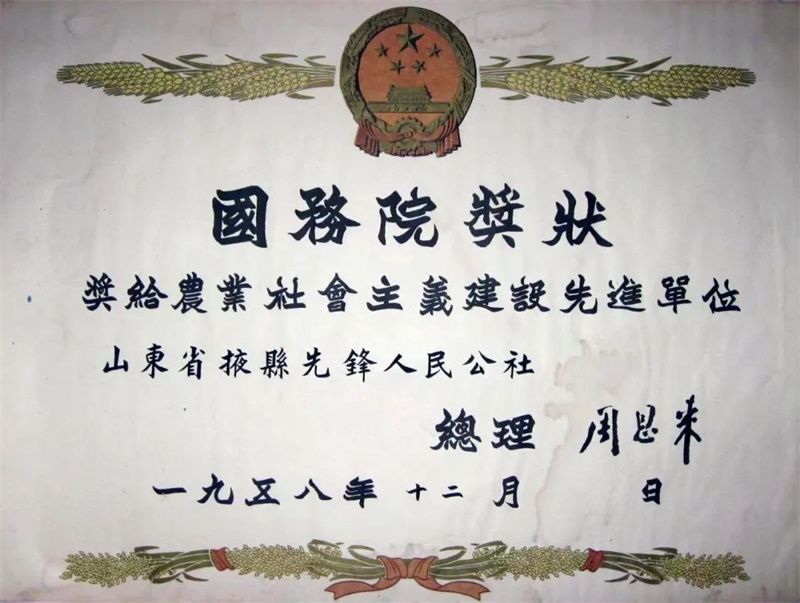 國務院奬狀
奬給農業社會主義建設先進單位
山東省掖縣先鋒人民公社
總理 周恩来
一九五八年 十二月 日